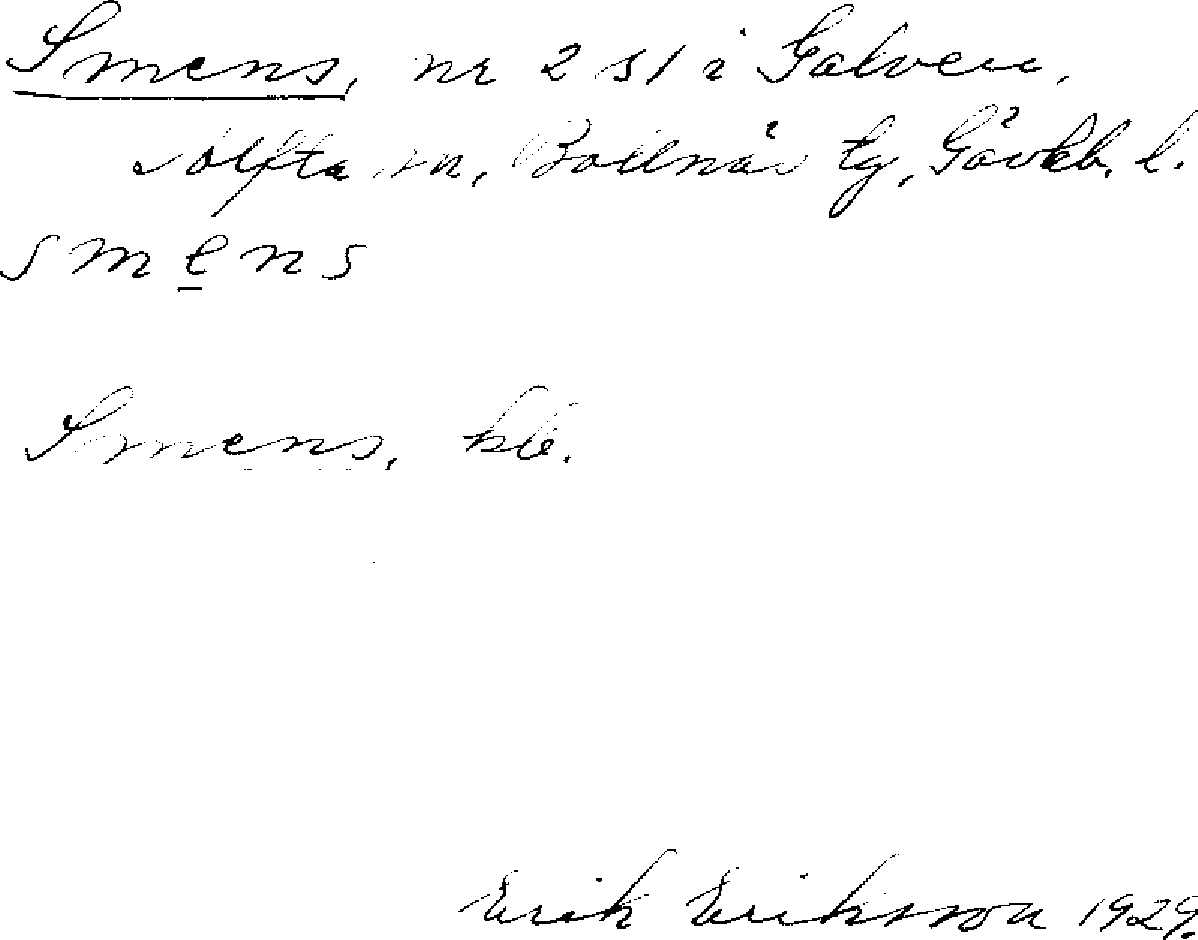 Smens, nr 2 s1 i Galven,
Alfta sn, Bollnäs tg, Gävleb. l.
smens
Smens, kle.
Erik Eriksson 1929.